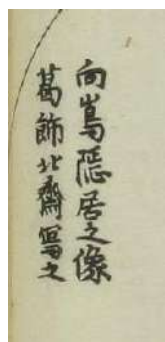 向嶌隠居之像
葛飾北齋寫之